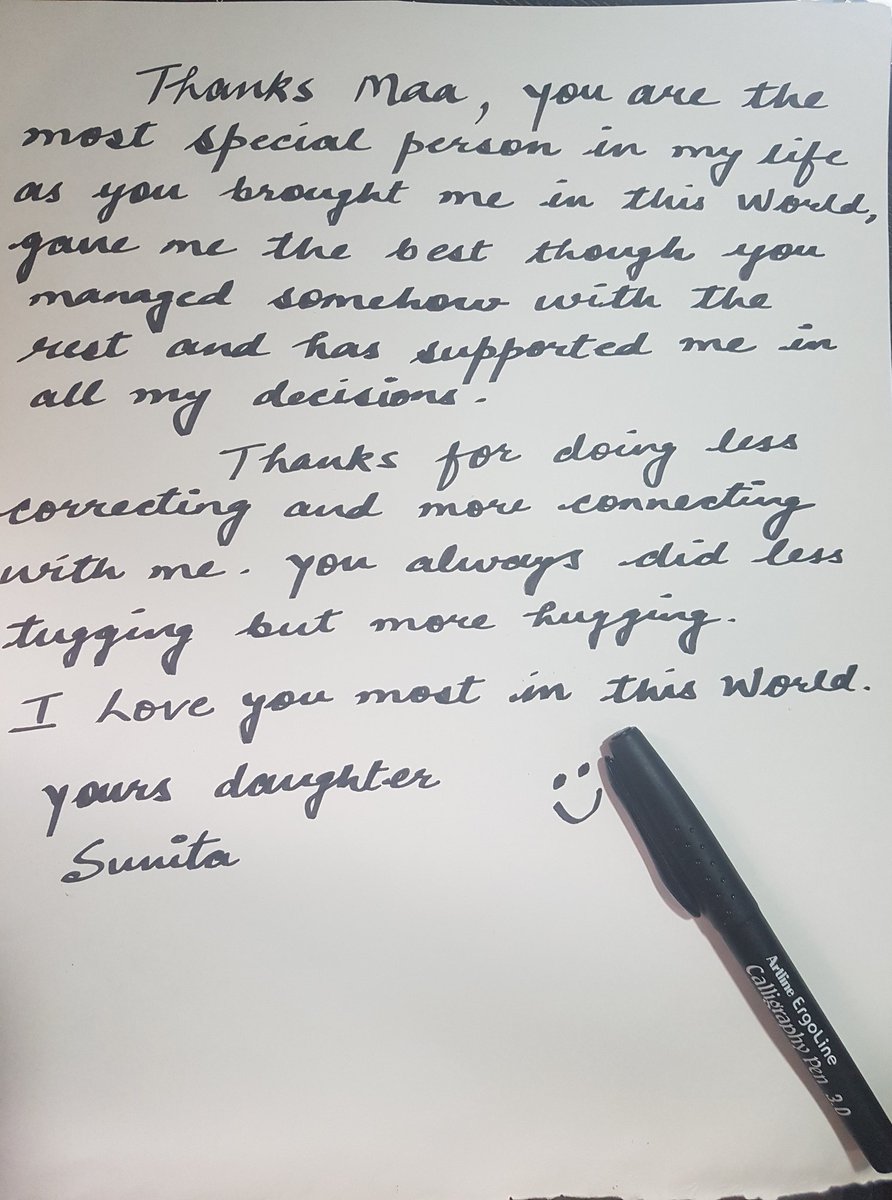 Thanks Maa, you are the
most special person in my life
as you brought me in this World,
gave me the best though you
managed somehow with the
rest and has supported me in
all my decisions.
Thanks for doing less
correcting and more connecting
with me. You always did less
tugging but more hugging.
I Love you most in this World.
yours daughter
Sunita
Artline ErgoLine
Calligraphy Pen 3.0